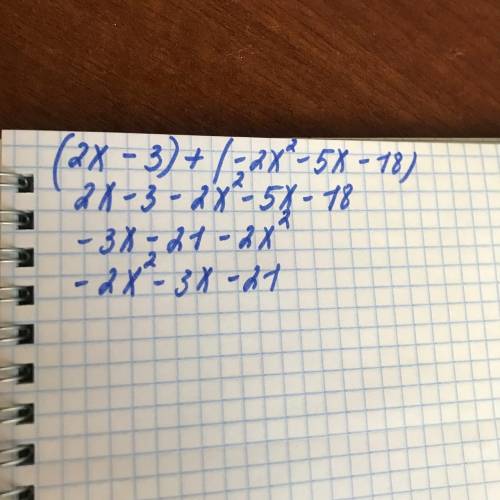 (2x - 3) + (-2x² - 5x - 18)
2x - 3 - 2x² - 5x - 18
- 3x - 21 - 2x²
- 2x² - 3x - 21